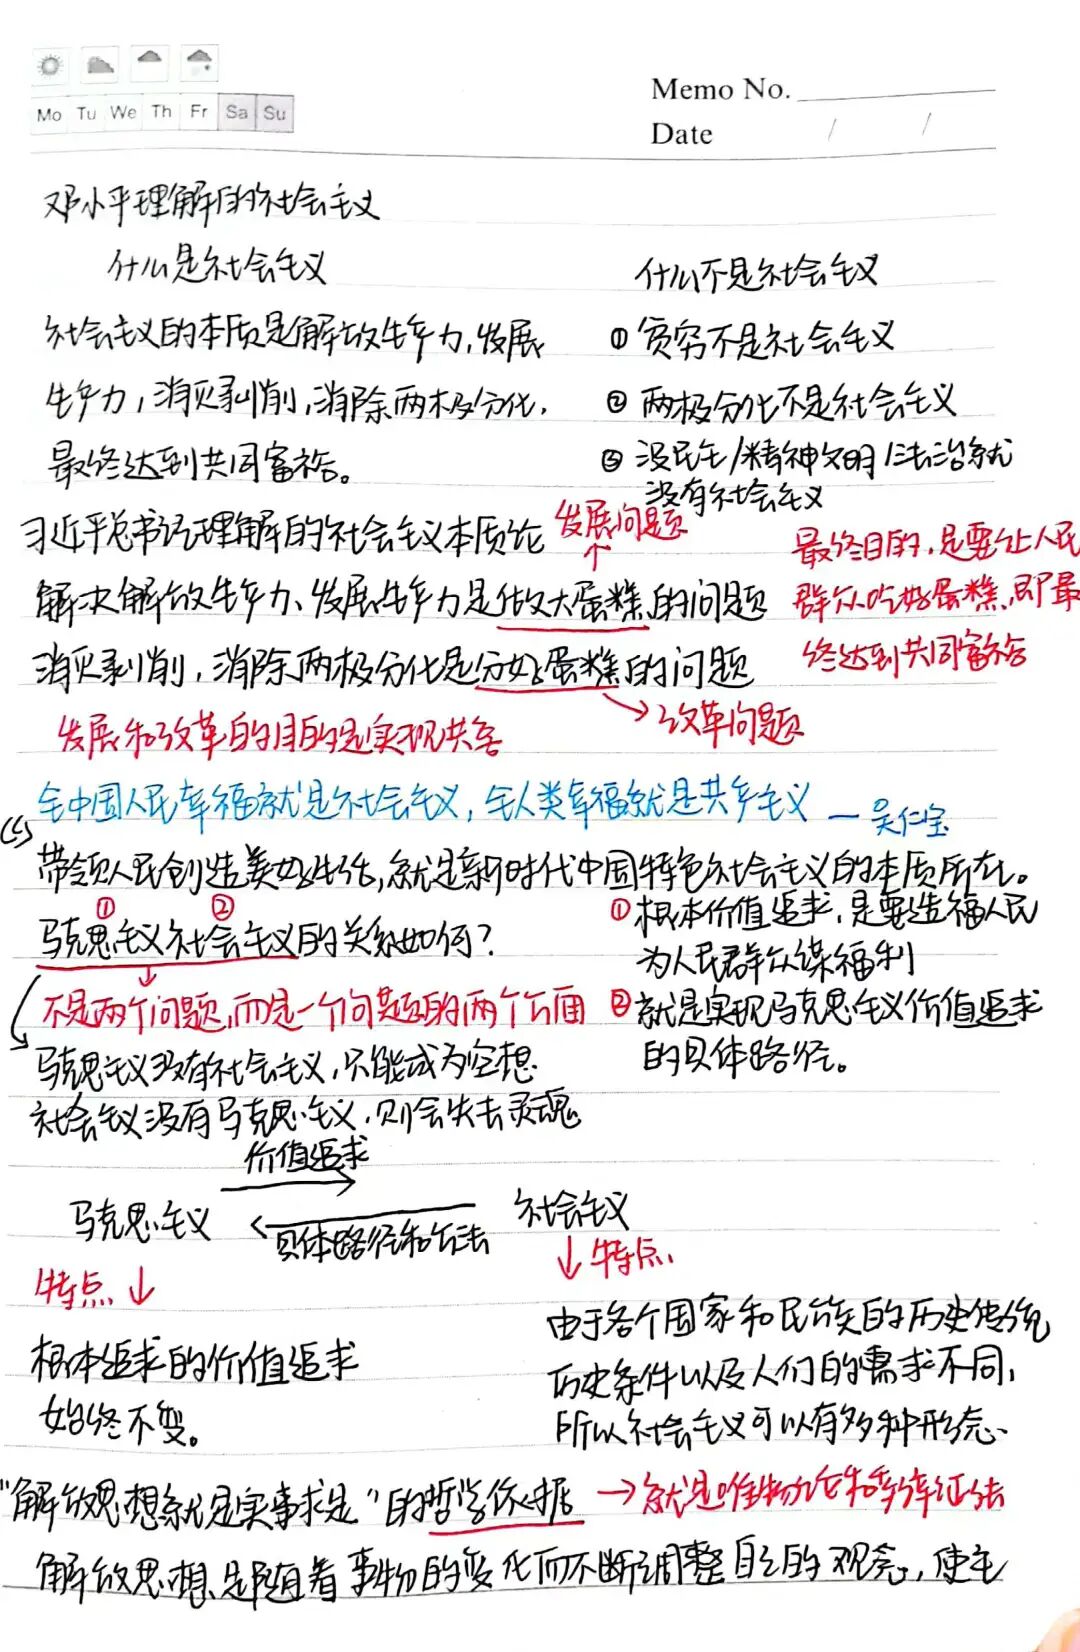 Mo Tu We Th Fr Sa Su
Memo No.
Date / /
邓小平理解的社会主义
什么是社会主义
什么不是社会主义
社会主义的本质是解放生产力,发展
① 贫穷不是社会主义
生产力,消灭剥削,消除两极分化,
② 两极分化不是社会主义
最终达到共同富裕。
③ 没民主/精神文明/法治就
没有社会主义
习近平总书记理解的社会主义本质论
发展问题
最终目的,是要让人民
解决解放生产力、发展生产力是做大蛋糕的问题
群众吃好蛋糕,即最
消灭剥削,消除两极分化是分好蛋糕的问题
终达到共同富裕
发展和改革的目的是实现共富
改革问题
全中国人民幸福就是社会主义,全人类幸福就是共产主义 — 吴仁宝
带领人民创造美好生活,就是新时代中国特色社会主义的本质所在。
① ②
马克思主义社会主义的关系如何?
① 根本价值追求,是要造福人民
为人民群众谋福利
不是两个问题,而是一个问题的两个方面
② 就是实现马克思主义价值追求
的具体路径。
马克思主义没有社会主义,只能成为空想
社会主义没有马克思主义,则会失去灵魂
价值追求
马克思主义
社会主义
具体路径和方法
特点
特点
根本追求的价值追求
始终不变。
由于各个国家和民族的历史传统
历史条件以及人们的需求不同,
所以社会主义可以有多种形态、
"解放思想就是实事求是"的哲学依据
→就是唯物论和辩证法
解放思想是随着事物的变化而不断调整自己的观念,使主